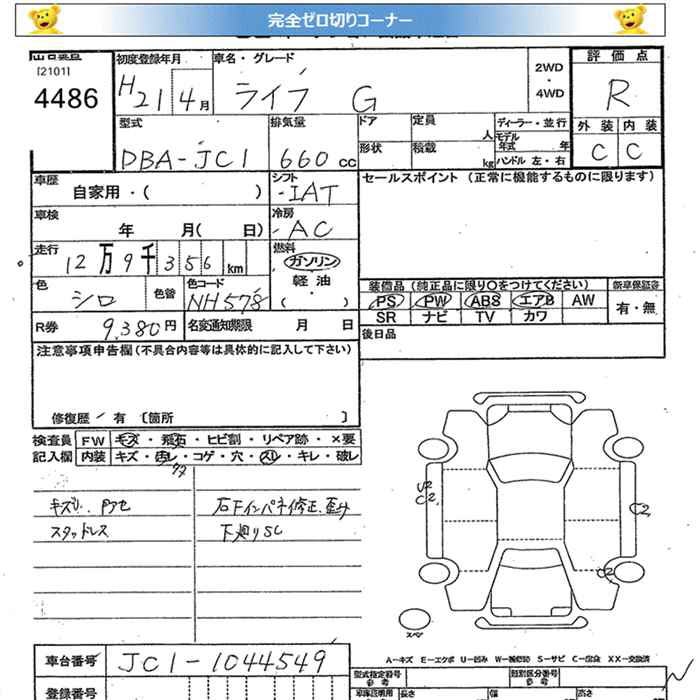 完全ゼロ切りコーナー
出品番号 初度登録年月 車名・グレード 評価点
[2101]
4486 H21 4月 ライフ G 2WD ・ 4WD R
型式 排気量 ドア 定員 人 ディーラー・並行 外装 内装
DBA-JC1 660cc 形状 積載 kg モデル年式 年 C C
ハンドル 左・右
車歴 自家用・( ) シフト IAT セールスポイント (正常に機能するものに限ります)
車検 年 月( 日) 冷房 AC
走行 12万9千356km 燃料 ガソリン
軽油
・( )
色 シロ 色替 色コード NH578
装備品 (純正品に限り○をつけてください) 新車保証書
PS PW ABS エアB AW 有・無
SR ナビ TV カワ
R券 9,380円 名変通知期限 月 日 後日品
注意事項申告欄(不具合内容等は具体的に記入して下さい)
修復歴/有 〔箇所 〕
検査員 FW キズ・飛石・ヒビ割・リペア跡・×要
記入欄 内装 キズ・汚レ・コゲ・穴・スレ・キレ・破レ
キズ
スタッドレス
下廻りSC
C2
C2
C2
スペア
A-キズ E-エクボ U-凹み S-サビ XX-交換済
車台番号 JC1-1044549 型式指定番号 類別区分番号
登録番号 長さ 幅 高さ